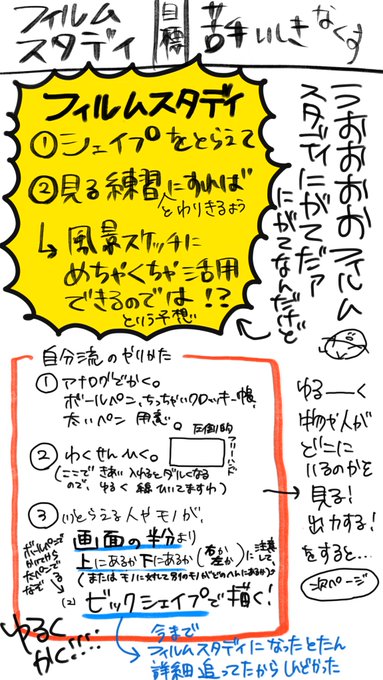 フィルム
スタディ
目標
苦手いしきなくす
フィルムスタディ
①シェイプをとらえて
②見る練習にすれば
とわりきるよう
↳風景スケッチに
めちゃくちゃ活用
できるのでは!?
という予想
うおおおおフィルム
スタディにがてだァ
にがてなんだけど
自分流のやりかた
①アナログでかく。
ボールペン、ちっちゃいクロッキー帳、
太いペン 用意。
②わくせんひく。
圧倒的
フリーハンド
(ここで きあい入れるとダルくなる
ので、ゆるく 線ひいてますわ)
③(1)とらえる人やモノが、
画面の半分より
上にあるか下にあるか(右か左か)に注意して
(または モノに対して別のモノがどのへんにあるか)
(2)ビックシェイプで描く!
ボールペンで
かいてから
太ペンで
なぞる
ゆるく
かく!!!!
今まで
フィルムスタディになったとたん
詳細追ってたからしんどかった
ゆるーく
物や人が
どこに
いるのかを
見る!
出力する!
をすると…
次ページ